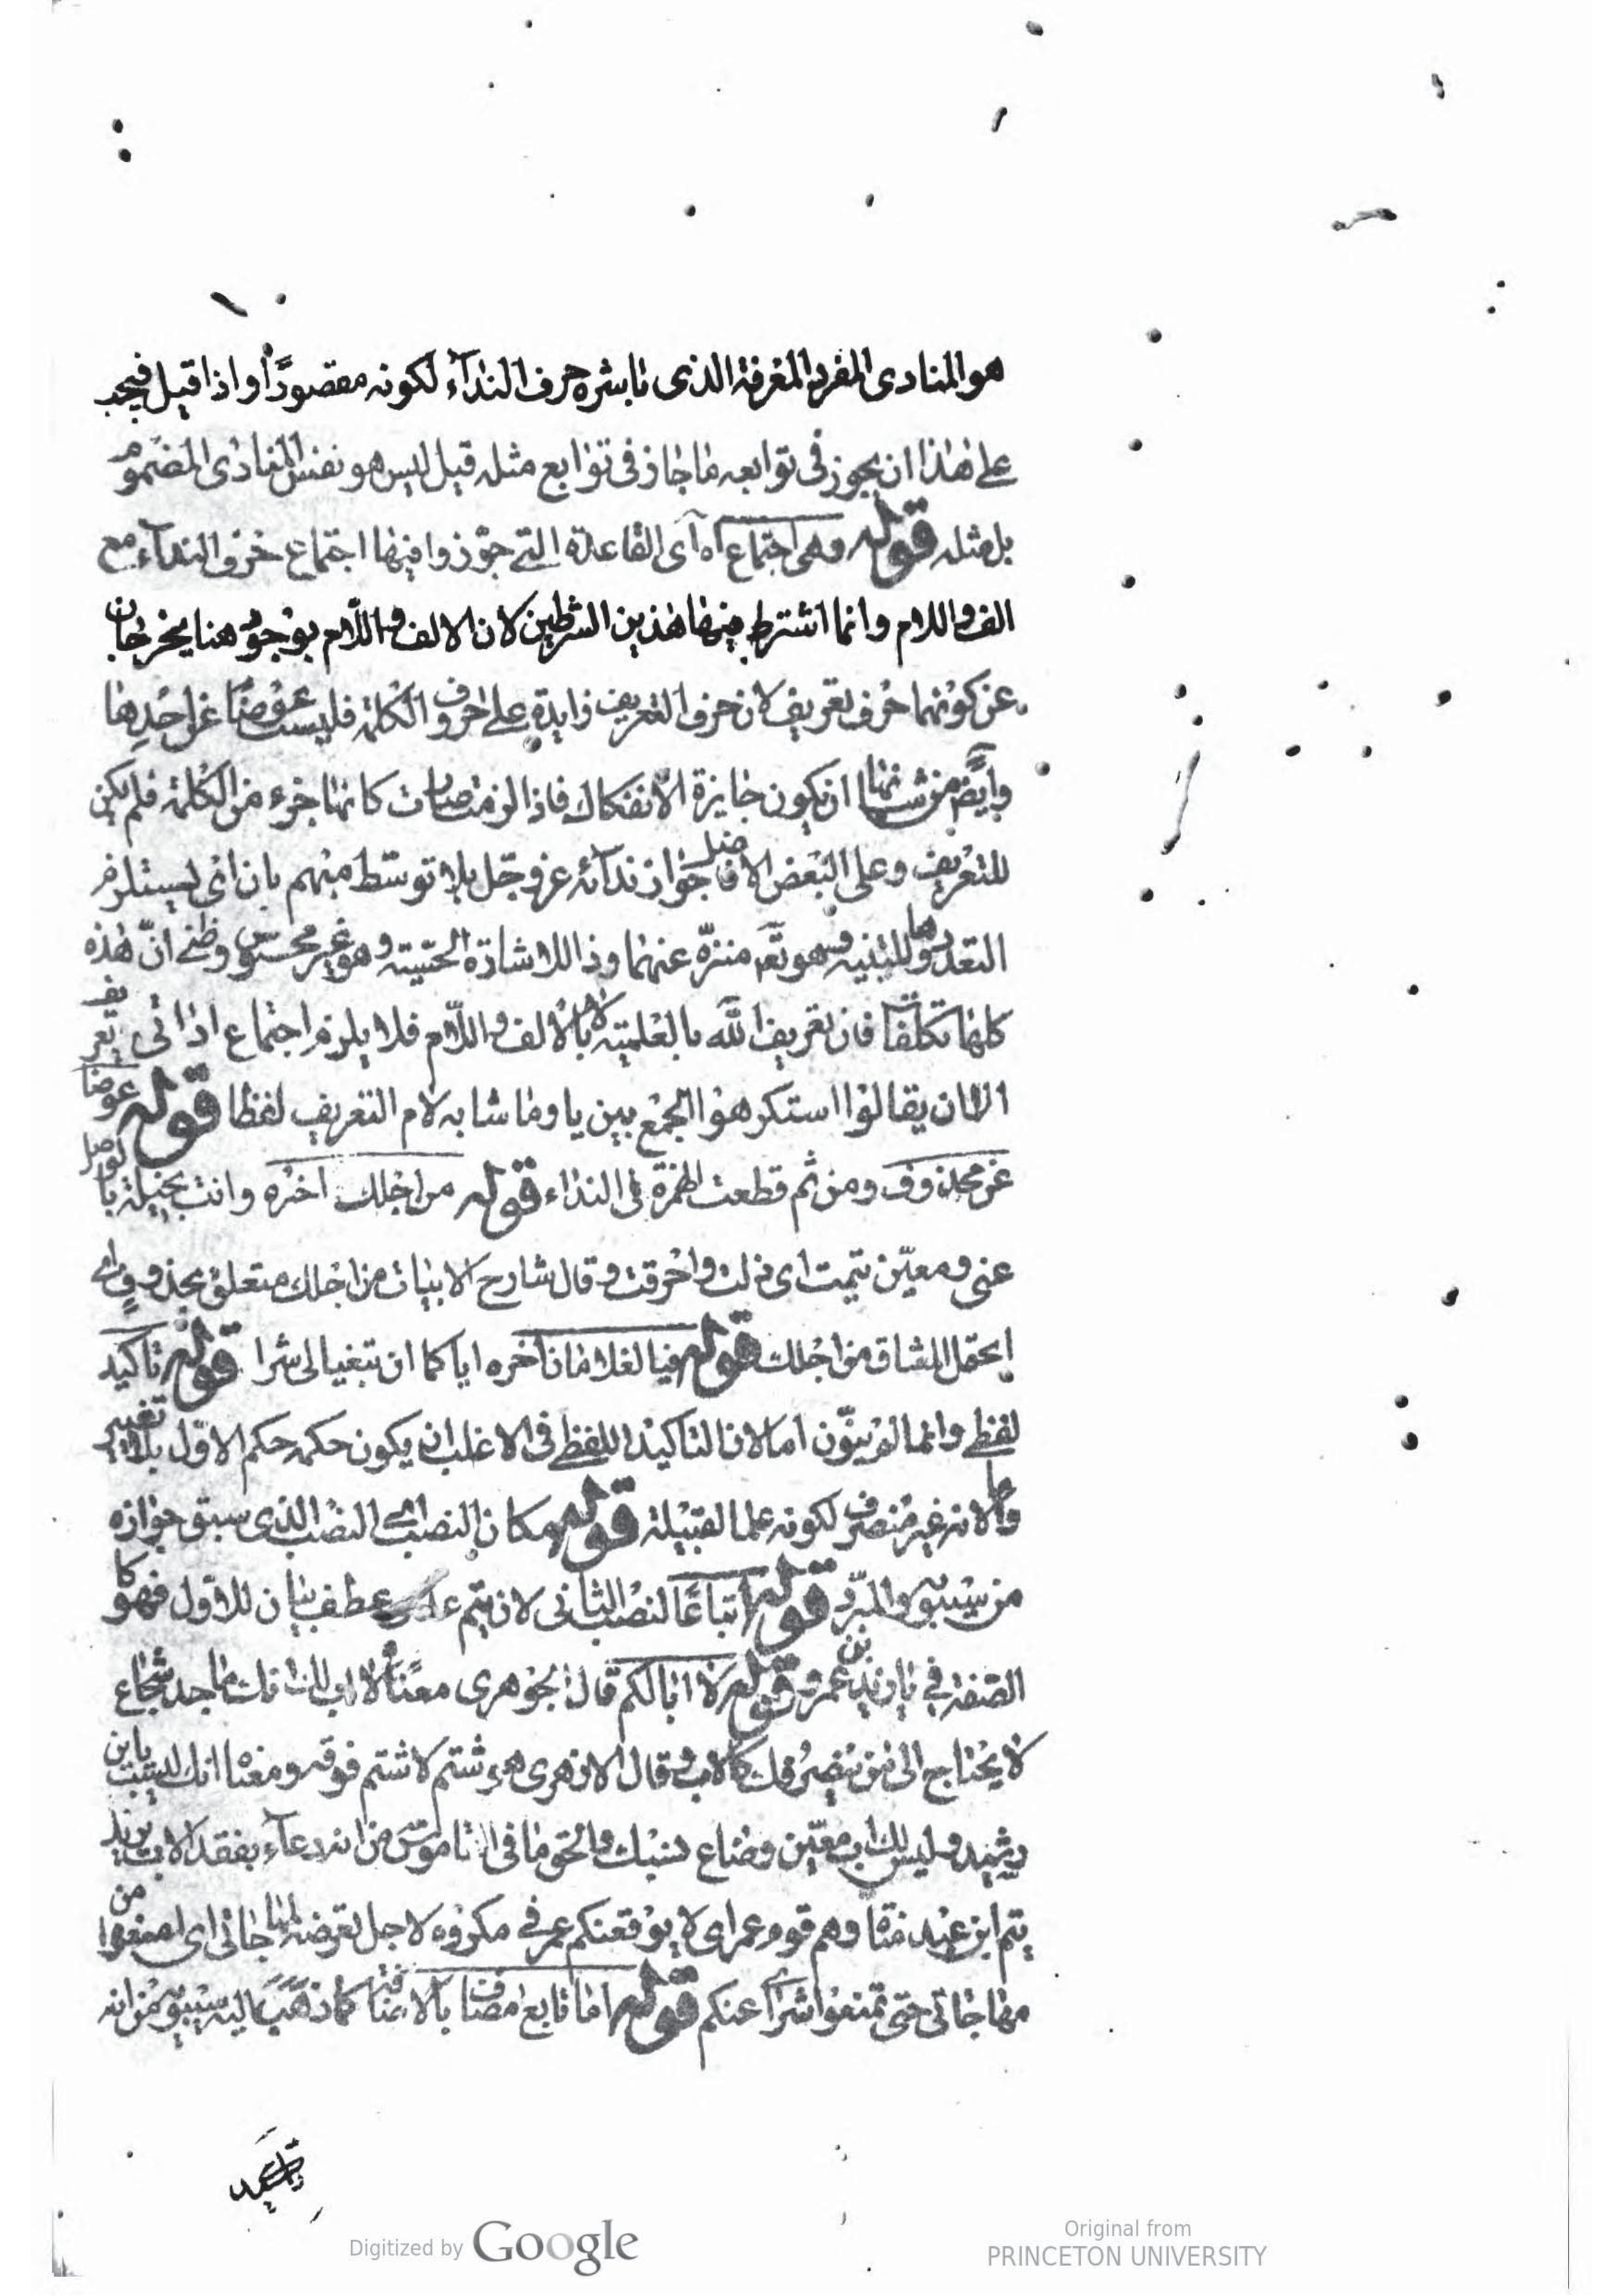 هو المنادى المفرد المعرفة الذى باشره حرف الندآء لكونه مقصودًا واذا قيل فيجب
على هذا ان يجوز فى توابعه ما جاز فى توابع مثله قيل ليس هو نفس المنادى المضموم
بل مثله قوله وهى اجتماع اه اى القاعدة التى جوّزوا فيها اجتماع حرف الندآء مع
الف واللام وانما اشترط فيها هذين الشرطين لان الالف واللّام بوجود هنا يخرجان
عن كونهما حرف تعريف لان حرف التعريف زايدة على حروف الكلمة فليست عوضا عن احدها
وايضا من شانها ان يكون جايزة الانفكاك فاذا لزمت صارت كانها جزء من الكلمة فلم يكن
للتعريف وعلى البعض الافاضل جواز ندآئه عز وجل بلا توسّط مبهم بان اى يستلزم
التعدد وها للتنبيه وهو تع منزّه عنهما وذا للاشارة الحسّيته وهو غير محسوس وظنى انّ هذه
كلها تكلفات فان تعريف الله بالعلميته لا بالالف واللّام فلا يلزم اجتماع اداتى تعريف
الا ان يقالوا استكرهوا الجمع بين يا وما شابه لام التعريف لفظا قوله عوضا
عن محذوف ومن ثم قطعت الهمزة فى النداء قوله من اجلك اخره وانت بخيلة بالوصل
عنى ومعنى تيمت اى ذلت واحرقت وقال شارح الابيات من اجلك متعلق بمحذوف اى
احتمل المشاق من اجلك قوله فيا الغلامان آخره اياكما ان تبغيا لى شرا قوله تاكيد
لفظى وانما لم ينوّن اما لان التاكيد اللفظى فى الاغلب ان يكون حكمه حكم الاوّل بلا تغيير
واما لانه غير منصرف لكونه علما لقبيلة قوله مكان النصب اى النصب الذى سبق جوازه
من سيبويه والمبرّد قوله اتباعًا لنصب الثانى لان تيم عطف بيان للاوّل فهو كا
الصفة فى يا زيد بن عمرو قوله لا ابا لكم قال الجوهرى معناه لا اب لك انك ماجد شجاع
لا يحتاج الى من ينصرك كالاب وقال الازهرى هو شتم لا شتم فوقه ومعناه انك لست بابن
رشيد وليس لك اب معيّن وضاع نسبك والحق ما فى القاموس من انه دعآء بفقد الاب يريد
يتم ابن عبد مناة وهم قوم عمر اى لا يوقعنكم عمر فى مكروه لاجل تعرضه لهجائى اى امنعوا من
مهاجاتى حتى تمنعوا شرا عنكم قوله اما تابع مضاف بالاضافة كما ذهب اليه سيبويه من انه